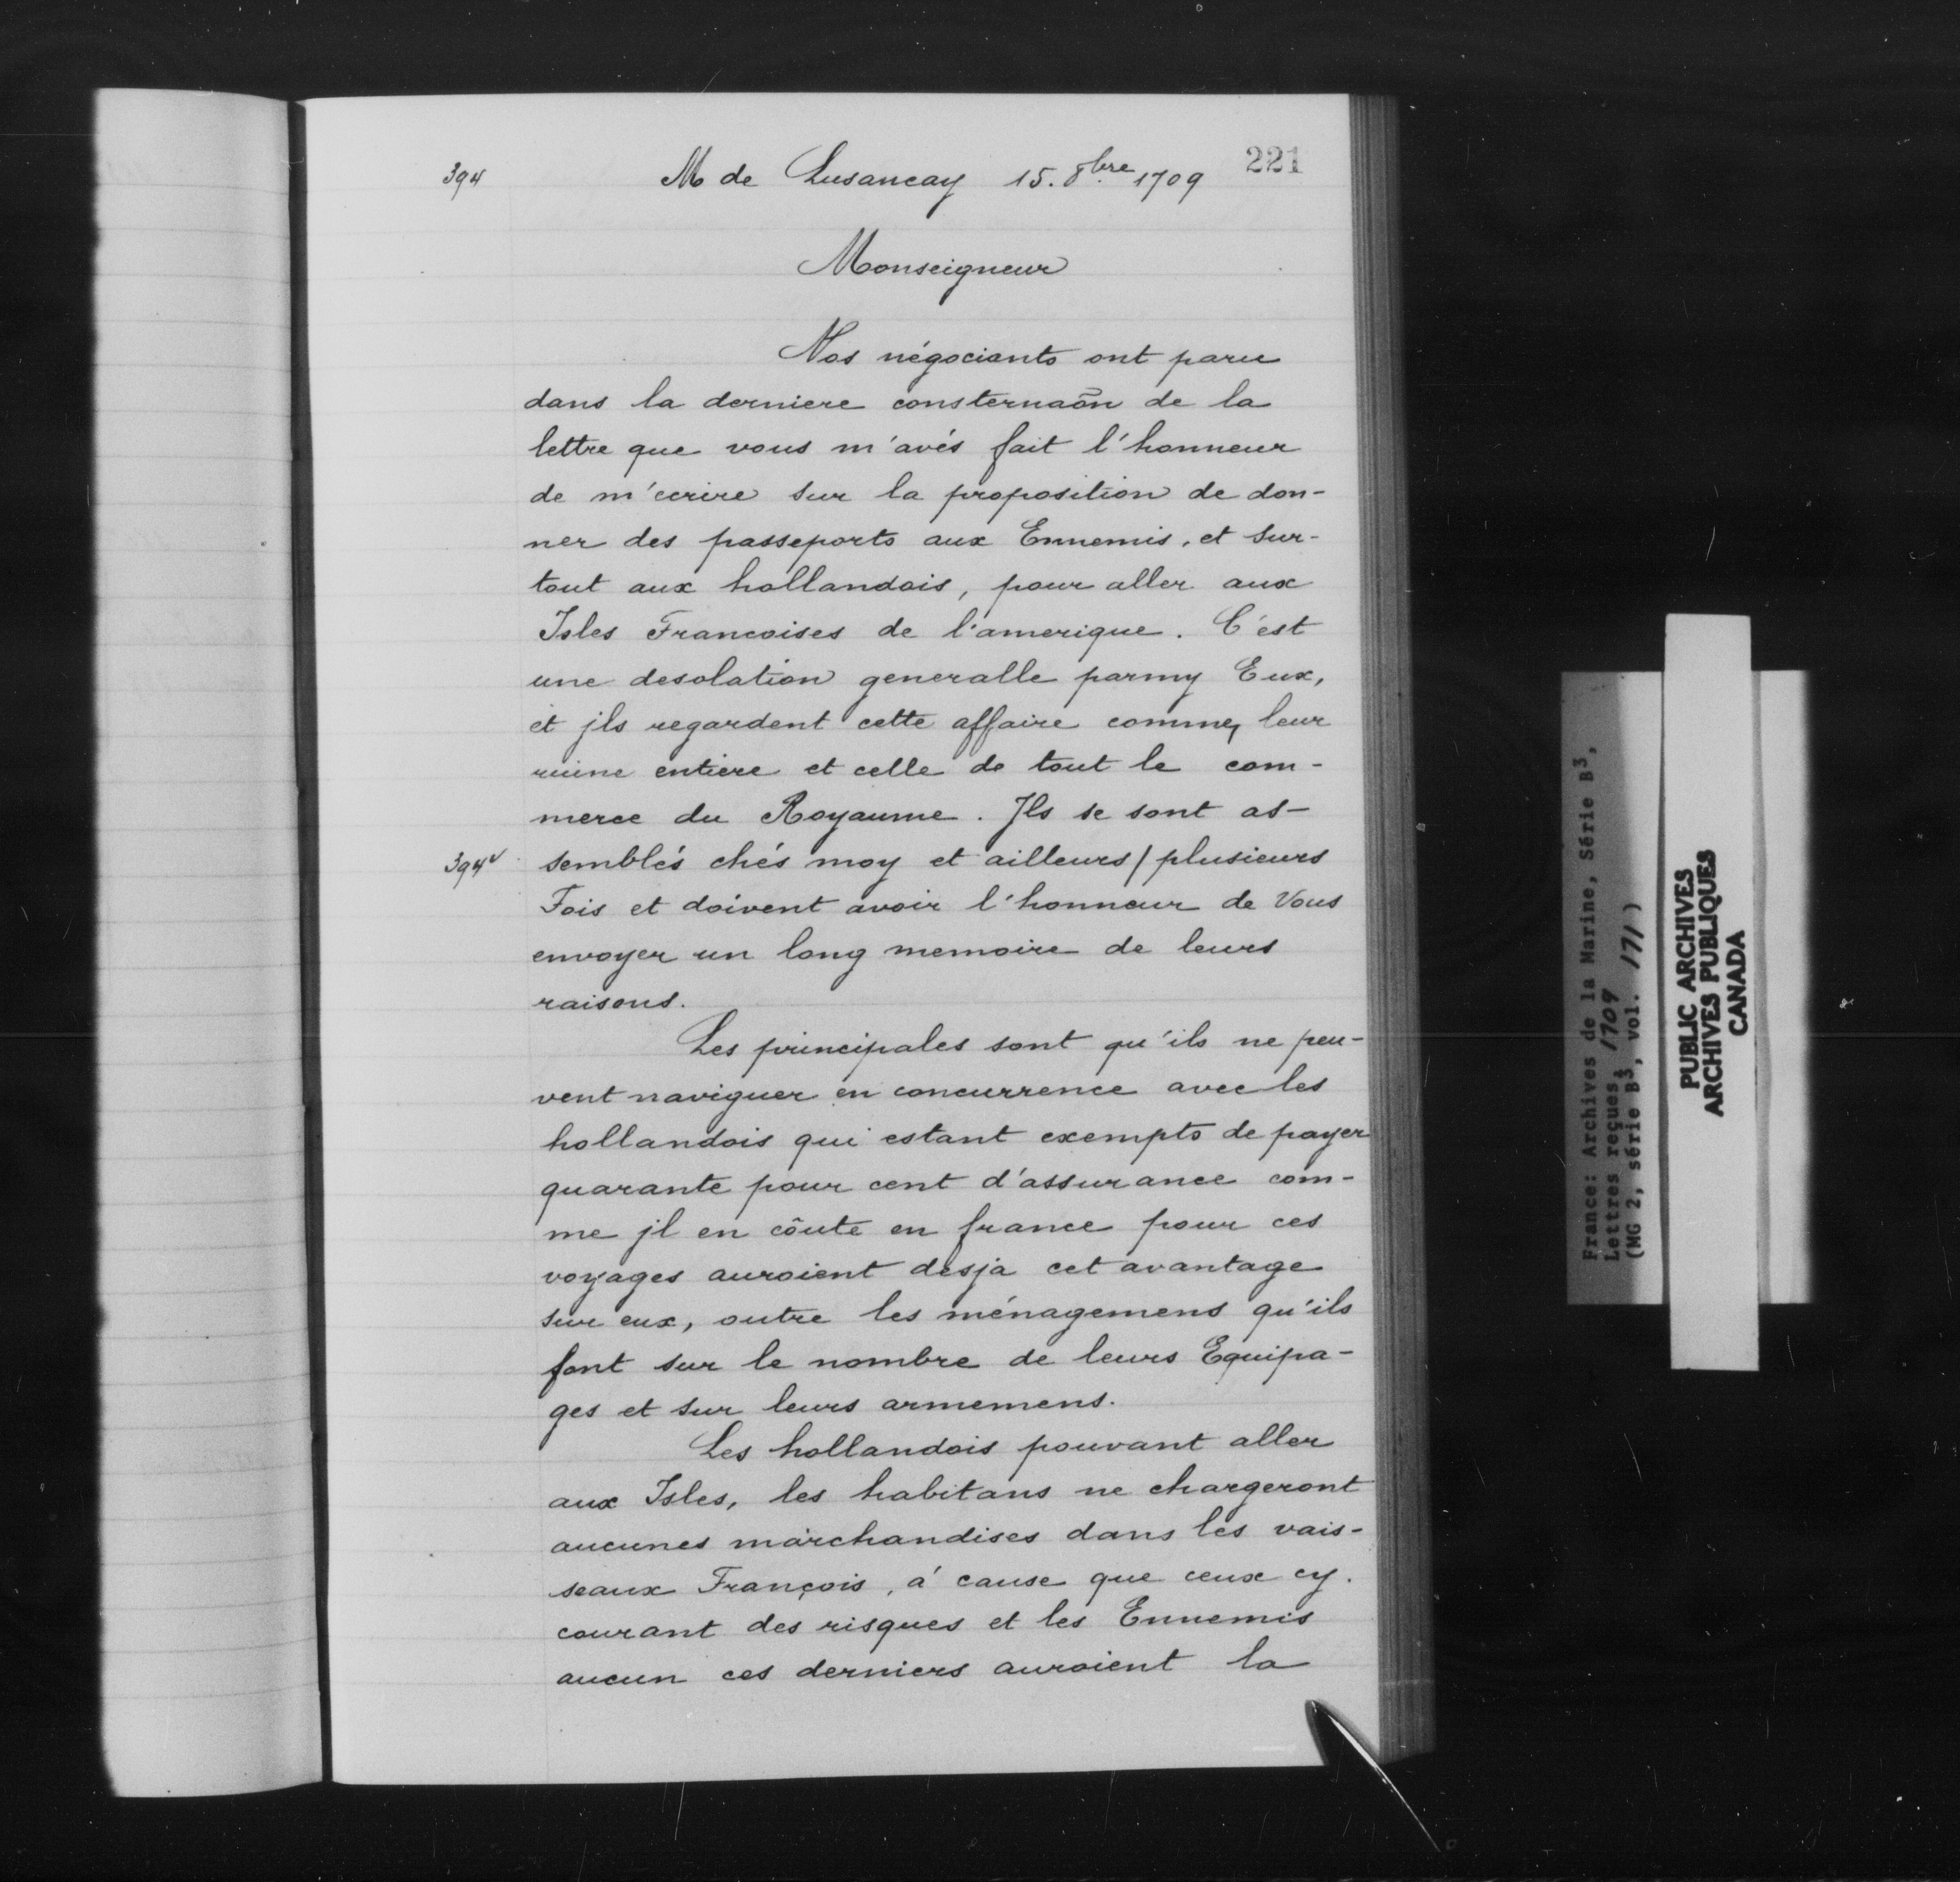 394 M de Lusancay 15. 8bre 1709 221
Monseigneur
Nos négociants ont paru
dans la derniere consternaôn de la
lettre que vous m'avés fait l'honneur
de m'ecrire sur la proposition de don-
ner des passeports aux Ennemis, et sur-
tout aux hollandois, pour aller aux
Isles Francoises de l'amerique. C'est
une desolation generalle parmy Eux,
et jls regardent cette affaire comme leur
ruine entiere et celle de tout le com-
merce du Royaume. Jls se sont as-
394v semblés chés moy et ailleurs / plusieurs
Fois et doivent avoir l'honneur de Vous
envoyer un long memoire de leurs
raisons.
Les principales sont qu'ils ne peu-
vent naviguer en concurrence avec les
hollandois qui estant exempts de payer
quarante pour cent d'assurance com-
me jl en côute en france pour ces
voyages auroient desja cet avantage
sur eux, outre les ménagemens qu'ils
font sur le nombre de leurs Equipa-
ges et sur leurs armemens.
Les hollandois pouvant aller
aux Isles, les habitans ne chargeront
aucunes marchandises dans les vais-
seaux François, á cause que ceux cy.
courant des risques et les Ennemis
aucun ces derniers auroient la
France: Archives de la Marine, Série B3,
Lettres reçues, 1709
(MG 2, série B3, vol. 171)
PUBLIC ARCHIVES
ARCHIVES PUBLIQUES
CANADA